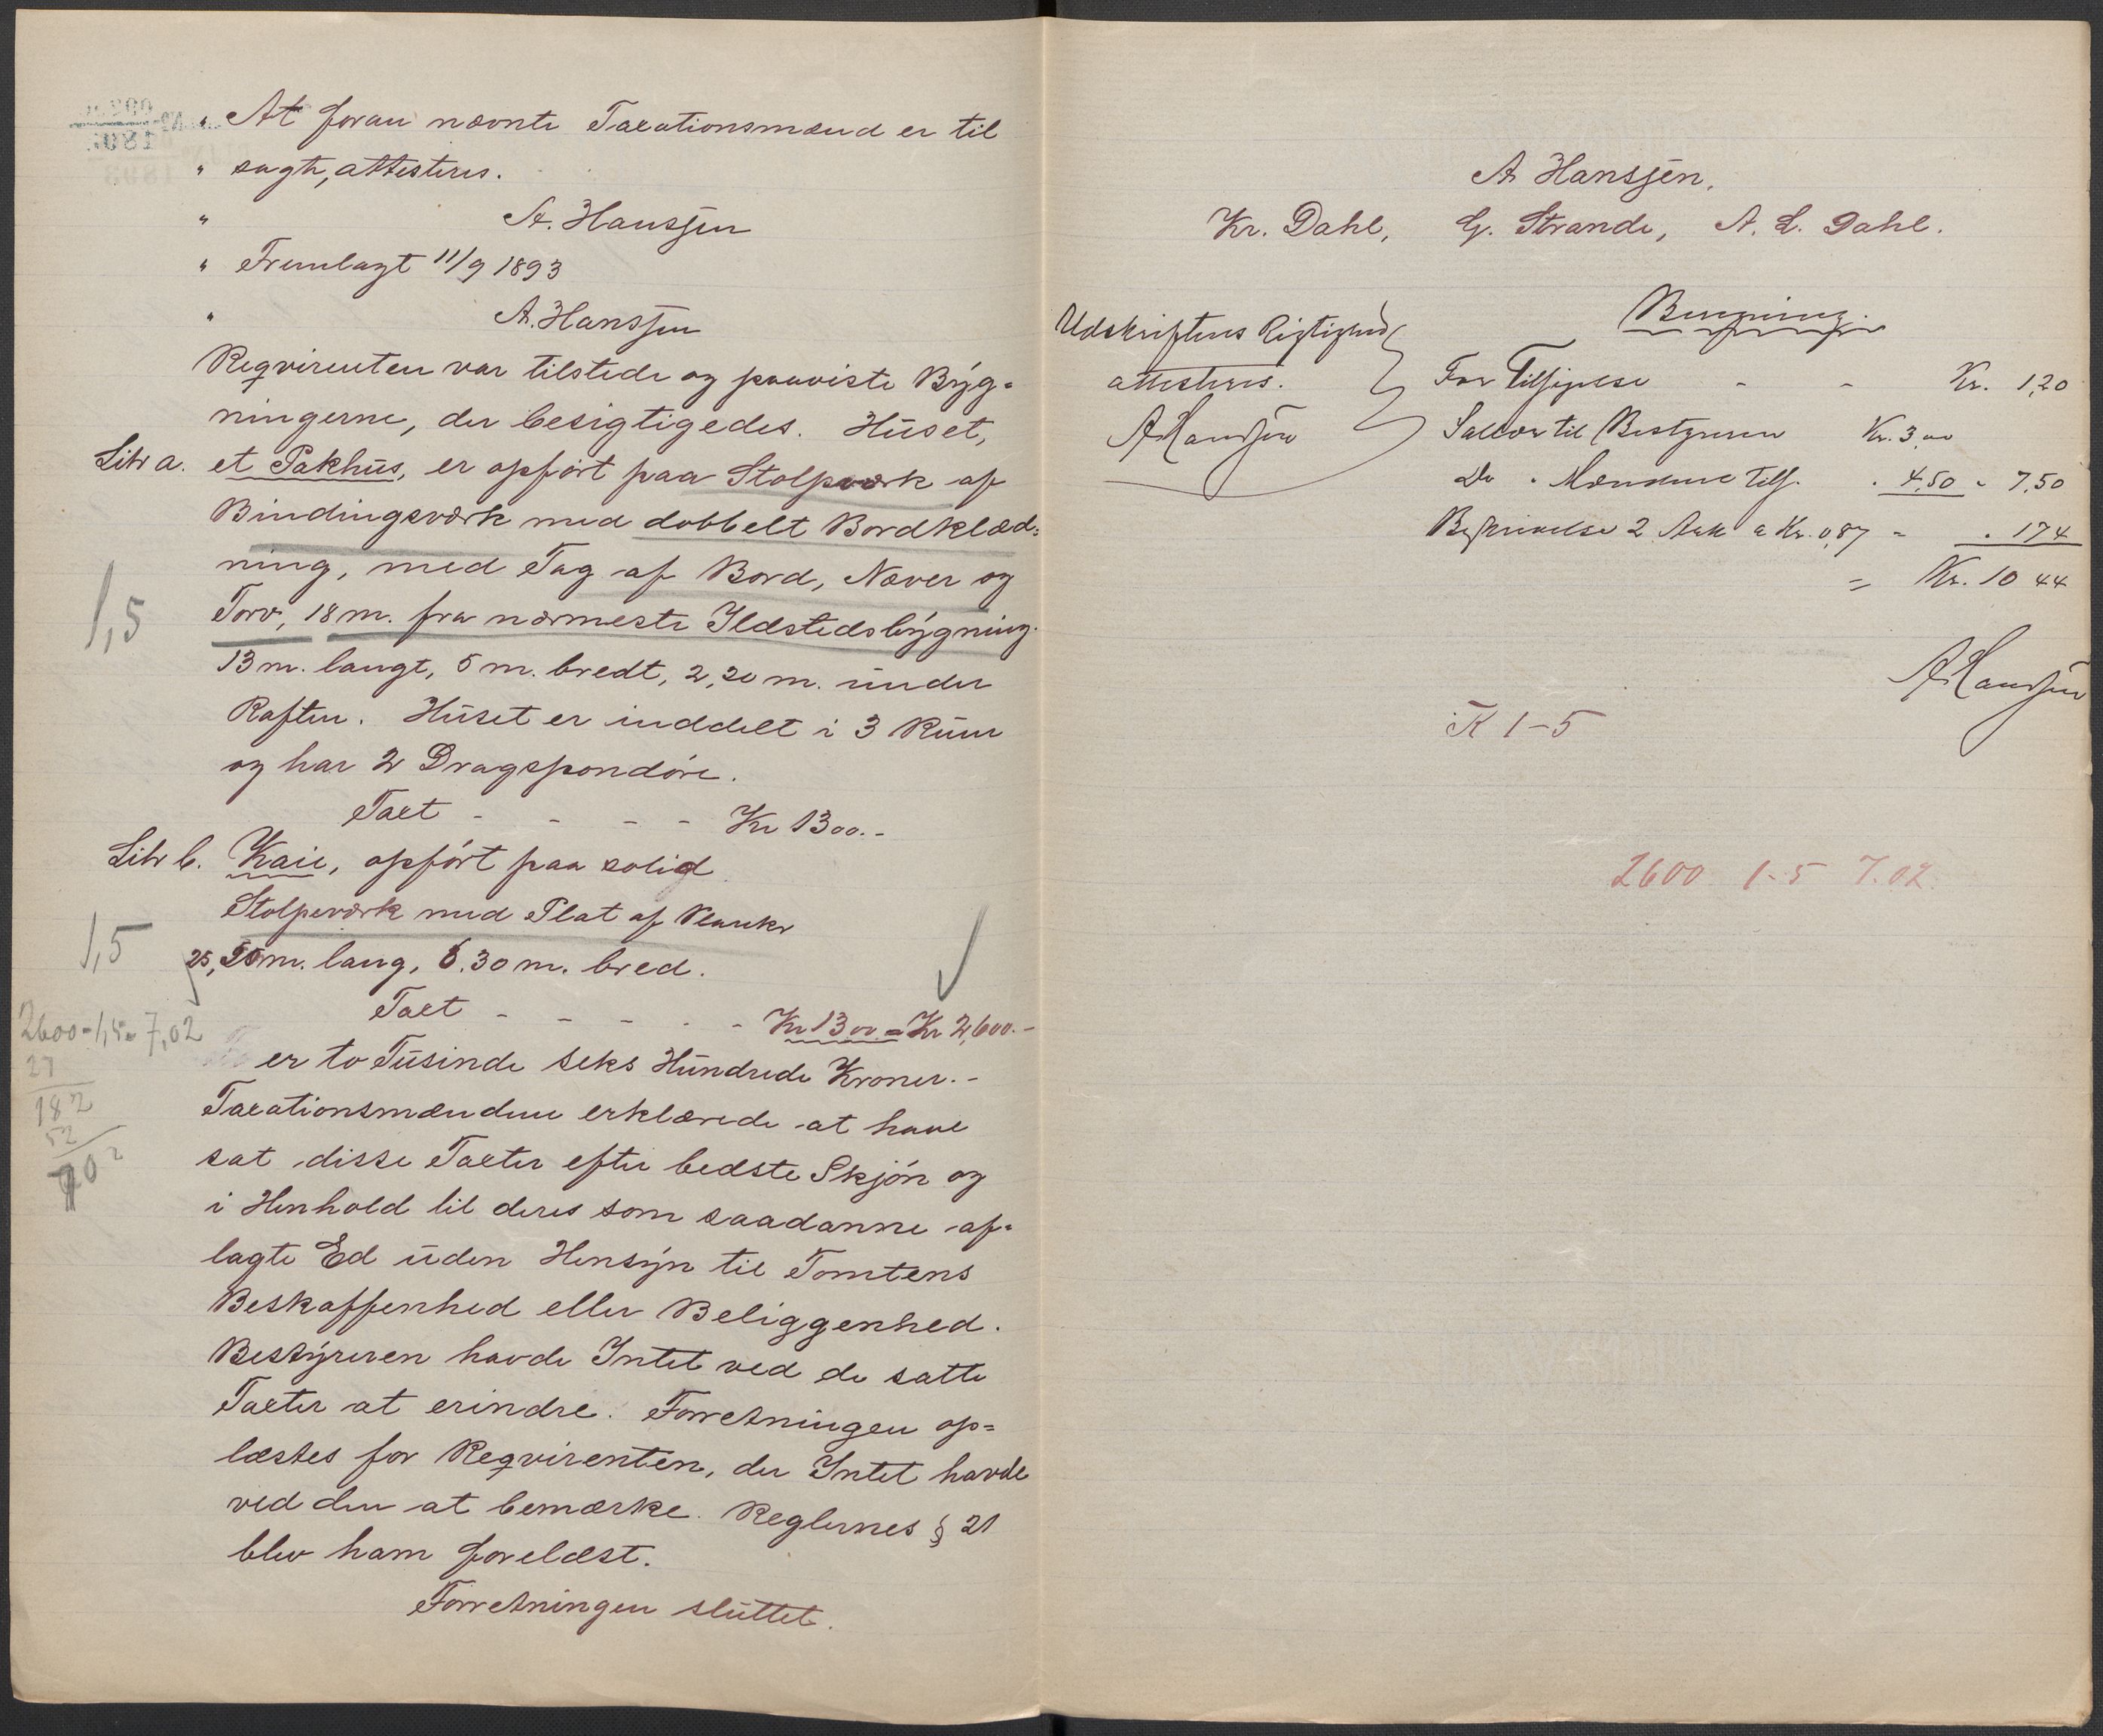 " At foran nævnte Taxationsmænd er til
" sagte, attesteres.
" A. Hanssen
" Fremlagt 11/9 1893
" A. Hanssen
Reqvirenten var tilstede og paaviste Byg-
ningerne, der besigtigedes. Huset,
Litr a. et Pakhus, er opført paa Stolpværk af
Bindingsværk med dobbelt Bordklæd-
ning, med Tag af Bord, Næver og
1,5 Torv, 18 m. fra nærmeste Ildstedsbygning.
13 m. langt, 5 m. bredt, 2,20 m. under
Raften. Huset er inddelt i 3 Rum
og har 2 Dragspondøre.
Taxt - - - - Kr 1300.-
Litr b. Kaie, opført paa solid
Stolpeværk med Plat af Planker
1,5 25,50 m. lang, 6.30 m. bred.
Taxt - - - - - Kr 1300 = Kr 2,600.-
2600-1,5= 7,02
27
182
52
702
er to Tusinde seks Hundrede Kroner.-
Taxationsmændene erklærede at have
sat disse Taxter efter bedste Skjøn og
i Henhold til deres som saadanne af-
lagte Ed uden Hensyn til Tomtens
Beskaffenhed eller Beliggenhed.
Bestyreren havde Intet ved de satte
Taxter at erindre. Forretningen op-
læstes for Reqvirenten, der Intet havde
ved den at bemærke. Reglernes § 21
blev ham forelæst.
Forretningen sluttet.
A Hanssen,
Kr. Dahl, G. Strande, A. L. Dahl.
Udskriftens Rigtighed
attesteres.
A Hanssen
Beregning.
For Tilsigelse - - Kr. 1,20
Salær til Bestyreren Kr. 3,00
Do " Mændene Tils. " 4,50 " 7,50
Beskrivelse 2 Ark a Kr. 0,87 - " 174
= Kr. 10 44
A Hanssen
K 1-5
2600 1-5 7.02.